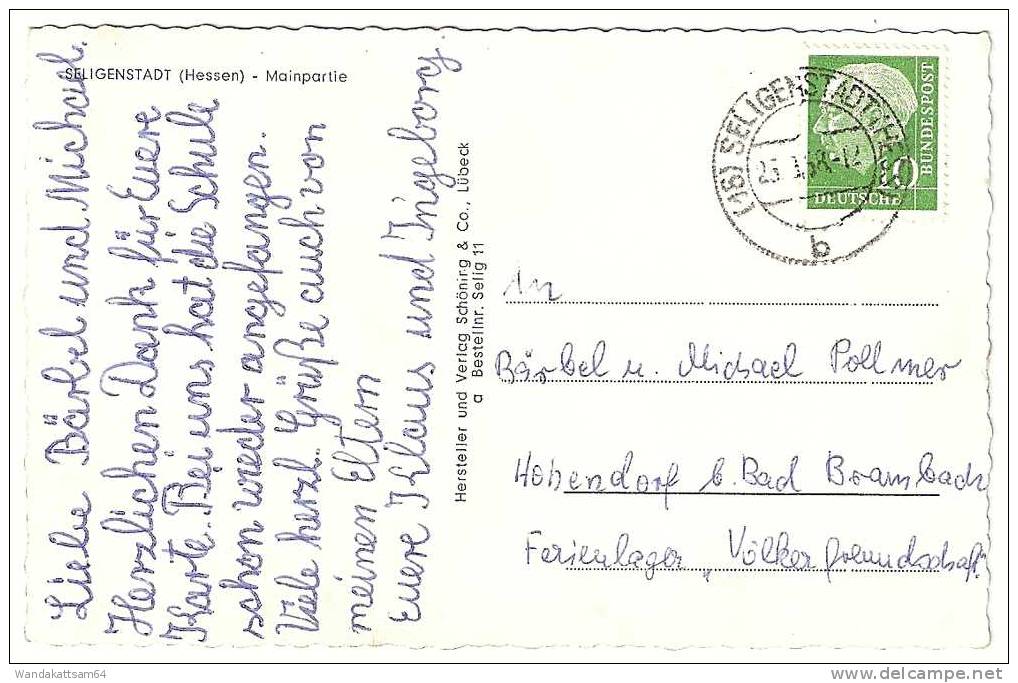 SELIGENSTADT (Hessen) - Mainpartie
Liebe Bärbel und Michael.
Herzlichen Dank für Euere
Karte. Bei uns hat die Schule
schon wieder angefangen.
Viele herzl. Grüße auch von
meinen Eltern
Euere Klaus und Ingeborg
Hersteller und Verlag Schöning & Co., Lübeck
a Bestellnr. Selig 11
(16) SELIGENSTADT (HESS)
b
10
DEUTSCHE
BUNDESPOST
An
Bärbel u. Michael Pollmer
Hohendorf b. Bad Brambach
Ferienlager „Völkerfreundschaft"
Wandakattsam64
delcampe.net